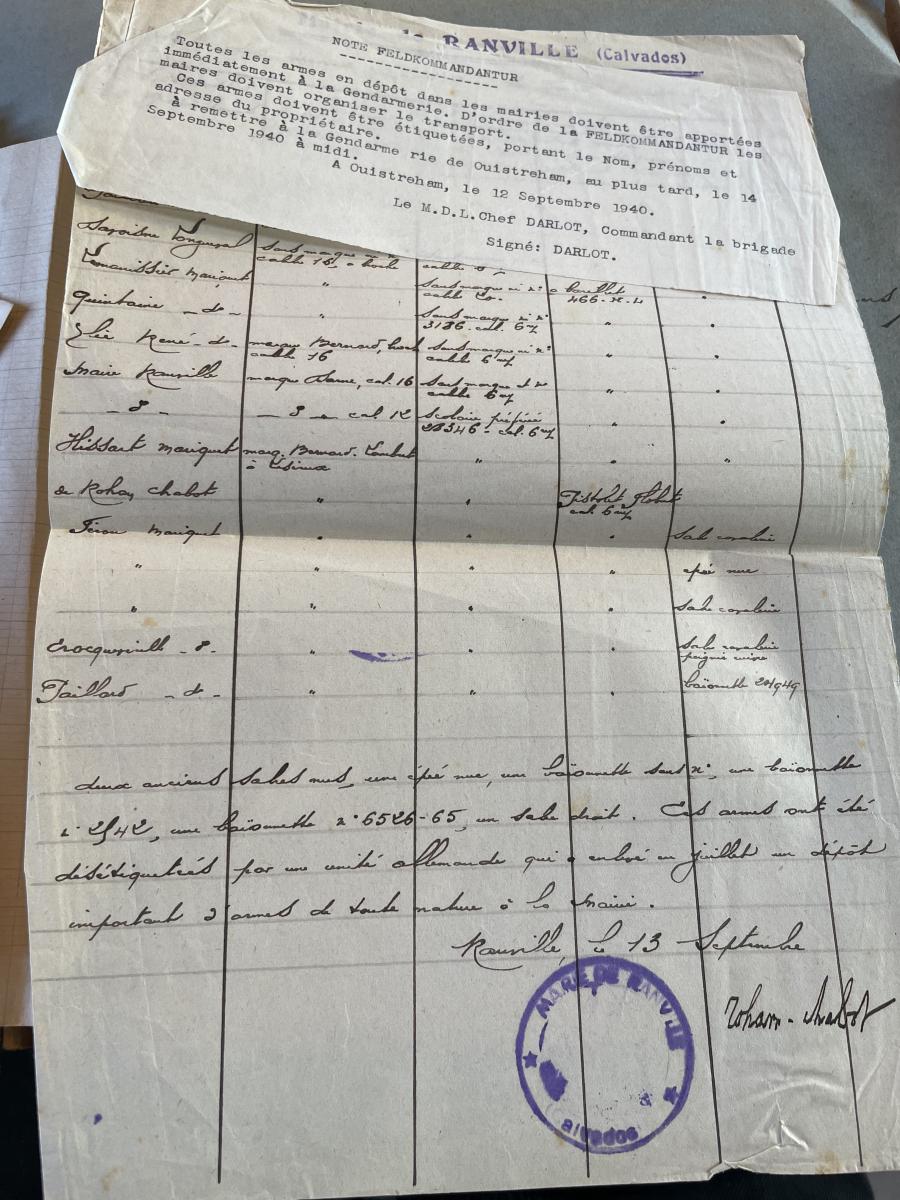 RANVILLE (Calvados)
NOTE FELDKOMMANDANTUR
Toutes les armes en dépôt dans les mairies doivent être apportées
immédiatement à la Gendarmerie. D'ordre de la FELDKOMMANDANTUR les
maires doivent organiser le transport.
Ces armes doivent être étiquetées, portant le Nom, prénoms et
adresse du propriétaire.
à remettre à la Gendarme rie de Ouistreham, au plus tard, le 14
Septembre 1940 à midi.
A Ouistreham, le 12 Septembre 1940.
Le M.D.L.Chef DARLOT, Commandant la brigade
Signé: DARLOT.
Longueval sans marque
calibre 16, à broche calibre
mariquet " sans marque ni n°
466
Quintaine - d - " sans marque ni n°
3136 - cal. 6 "
Elie René - d - marque Bernard, sans marque ni n° " "
calibre 16 calibre 6
Maire Ranville marque Darne, cal. 16 sans marque " "
calibre 6
cal 12 scolaire préférée " "
28346 - cal. 6
Hissart mariquet marq. Bernard " " "
à Lisieux
de Rohan Chabot " " Pistolet Flobert
cal. 6
mariquet " " " sabre cavalerie
" " " " épée nue
" " " " sabre cavalerie
Crocqueville " " " sabre cavalerie
poignée cuivre
Paillard - d - " " " baïonnette
deux anciens sabres nus, une épée nue, une baïonnette sans n°, une baïonnette
n° 2542, une baïonnette n° 6526-65, un sabre droit. Ces armes ont été
désétiquetées par une unité allemande qui a enlevé en juillet un dépôt
important d'armes de toute nature à la Mairie.
Ranville, le 13 Septembre
Rohan-Chabot
MAIRIE DE RANVILLE
Calvados